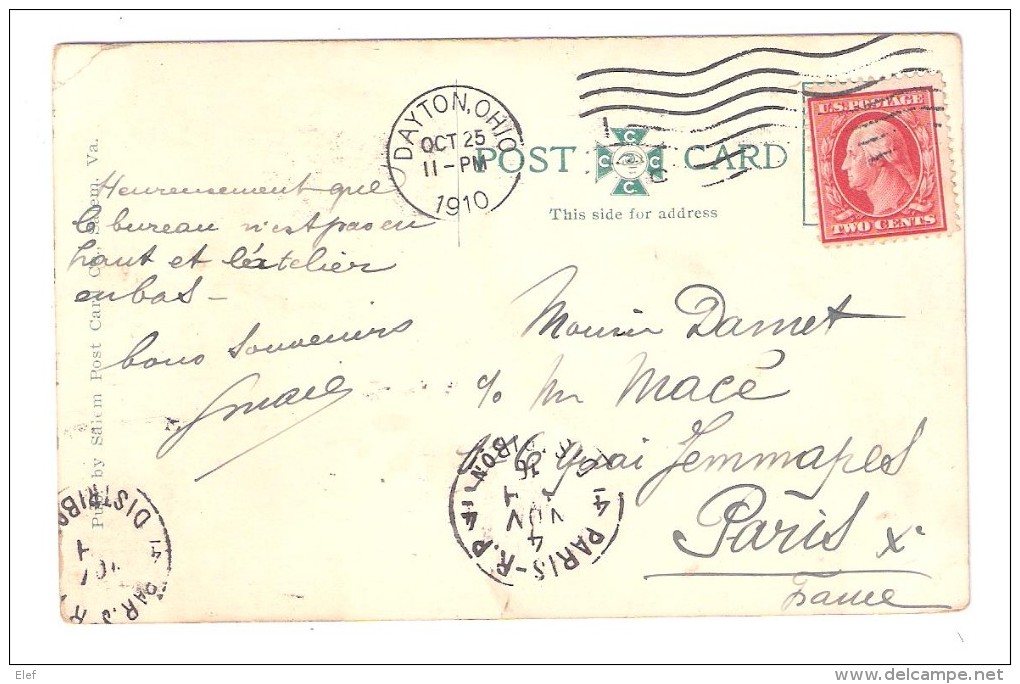 DAYTON, OHIO
OCT 25
11-PM
1910
POST CARD
C C C C
This side for address
U.S. POSTAGE
TWO CENTS
Heureusement que
le bureau n'est pas en
haut et l'atelier
en bas –
bons Souvenirs
Monsieur Damet
c/o Mr Macé
Quai Jemmapes
Paris Xe
France
by Salem Post Card Co., Salem, Va.
PARIS - R.P
4
DISTRIB
Elef
delcampe.net